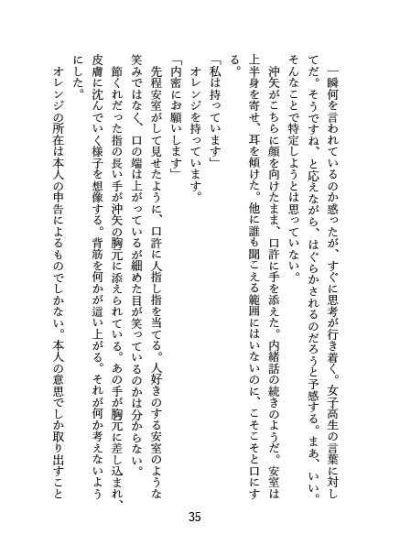 一瞬何を言われているのか惑ったが、すぐに思考が行き着く。女子高生の言葉に対し
てだ。そうですね、と応えながら、はぐらかされるのだろうと予感する。まあ、いい。
そんなことで特定しようとは思っていない。
沖矢がこちらに顔を向けたまま、口許に手を添えた。内緒話の続きのようだ。安室は
上半身を寄せ、耳を傾けた。他に誰も聞こえる範囲にはいないのに、こそこそと口にす
る。
「私は持っています」
オレンジを持っています。
「内密にお願いします」
先程安室がして見せたように、口許に人指し指を当てる。人好きのする安室のような
笑みではなく、口の端は上がっているが細めた目が笑っているのかは分からない。
節くれだった指の長い手が沖矢の胸元に添えられている。あの手が胸元に差し込まれ、
皮膚に沈んでいく様子を想像する。背筋を何かが這い上がる。それが何か考えないよう
にした。
オレンジの所在は本人の申告によるものでしかない。本人の意思でしか取り出すこと
35